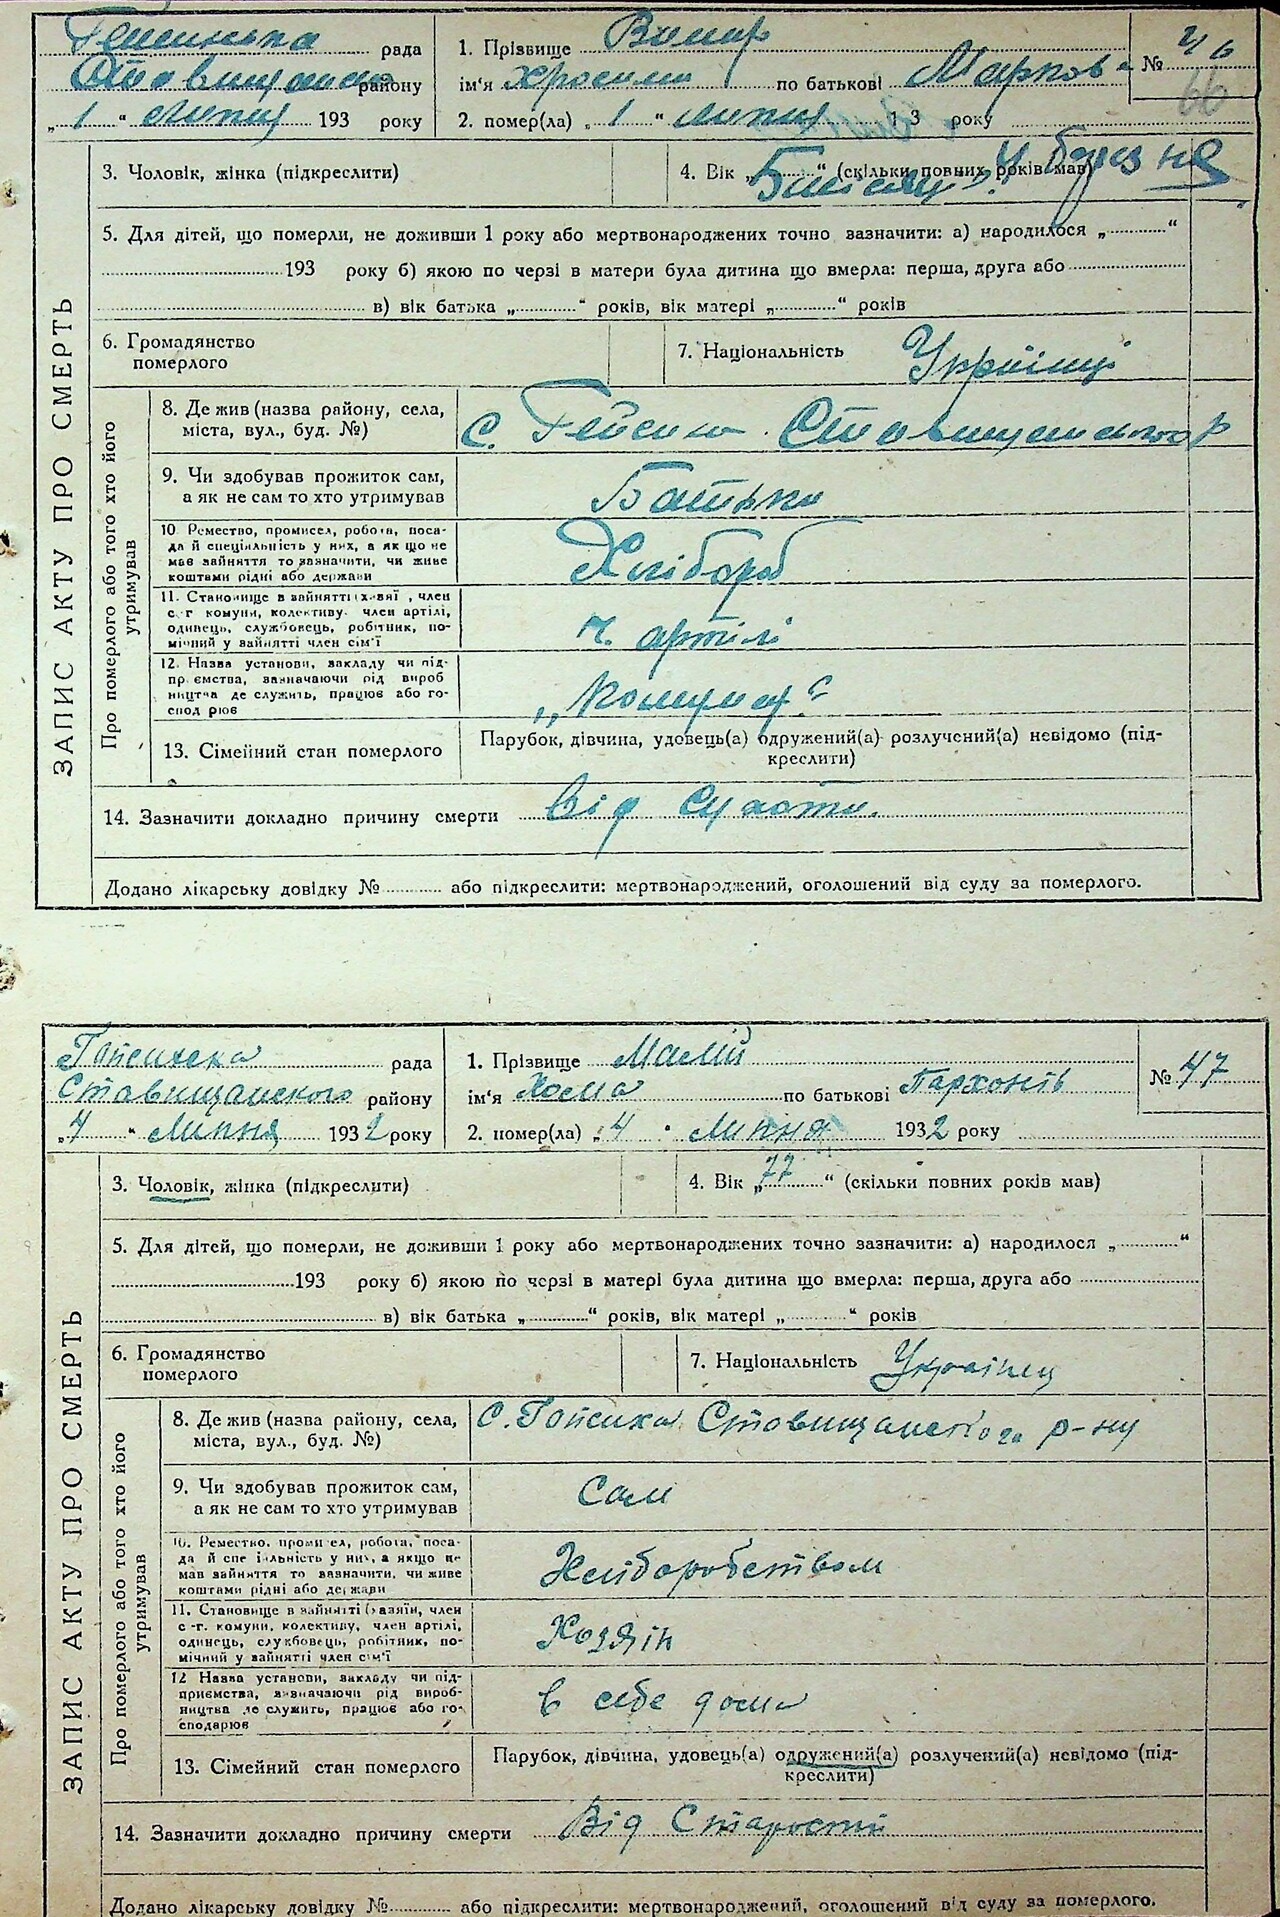 рада
району
„ 1 “ липня 193 року
1. Прізвище
ім'я по батькові Марков
2. помер(ла) „ 1 “ липня 1 3 року
№ 46
66
ЗАПИС АКТУ ПРО СМЕРТЬ
3. Чоловік, жінка (підкреслити)
4. Вік „ “ (скільки повних років мав)
5. Для дітей, що померли, не доживши 1 року або мертвонароджених точно зазначити: а) народилося „ “
193 року б) якою по черзі в матери була дитина що вмерла: перша, друга або
в) вік батька „ “ років, вік матері „ “ років
6. Громадянство
померлого
7. Національність
Про померлого або того хто його
утримував
8. Де жив (назва району, села,
міста, вул., буд. №)
с.
9. Чи здобував прожиток сам,
а як не сам то хто утримував
Батьки
10 Ремество, промисел, робота, поса-
да й спеціяльність у них, а як що не
мав зайняття то зазначити, чи живе
коштами рідні або держави
Хлібороб
11. Становище в зайнятті член
с-г комуни, колективу член артілі,
одинець, службовець, робітник, по-
мічний у зайнятті член сім'ї
ч. артілі
12. Назва установи, закладу чи під-
приємства, зазначаючи рід вироб
ництва де служить, працює або го-
сподарює
13. Сімейний стан померлого
Парубок, дівчина, удовець(а) одружений(а) розлучений(а) невідомо (під-
креслити)
14. Зазначити докладно причину смерти Від сухоти.
Додано лікарську довідку № або підкреслити: мертвонароджений, оголошений від суду за померлого.
рада
Ставищанського району
„ 4 “ Липня 1932 року
1. Прізвище Малій
ім'я Хома по батькові Пархонів
2. помер(ла) „ 4 “ Липня 1932 року
№ 47
ЗАПИС АКТУ ПРО СМЕРТЬ
3. Чоловік, жінка (підкреслити)
4. Вік „ 77 “ (скільки повних років мав)
5. Для дітей, що померли, не доживши 1 року або мертвонароджених точно зазначити: а) народилося „ “
193 року б) якою по черзі в матері була дитина що вмерла: перша, друга або
в) вік батька „ “ років, вік матері „ “ років
6. Громадянство
померлого
7. Національність Українец
Про померлого або того хто його
утримував
8. Де жив (назва району, села,
міста, вул., буд. №)
с. Ставищанского р-ну
9. Чи здобував прожиток сам,
а як не сам то хто утримував
Сам
10. Ремество, промисел, робота, поса-
да й спеціяльність у них, а якщо не
мав зайняття то зазначити, чи живе
коштами рідні або держави
Хліборобством
11. Становище в зайнятті (хазяїн, член
с-г. комуни, колективу, член артілі,
одинець, службовець, робітник, по-
мічний у зайнятті член сім'ї
Хозяін
12 Назва установи, закладу чи під-
приємства, зазначаючи рід вироб-
ництва де служить, працює або го-
сподарює
в себе дома
13. Сімейний стан померлого
Парубок, дівчина, удовець(а) одружений(а) розлучений(а) невідомо (під-
креслити)
14. Зазначити докладно причину смерти Від Старости
Додано лікарську довідку № або підкреслити: мертвонароджений, оголошений від суду за померлого.